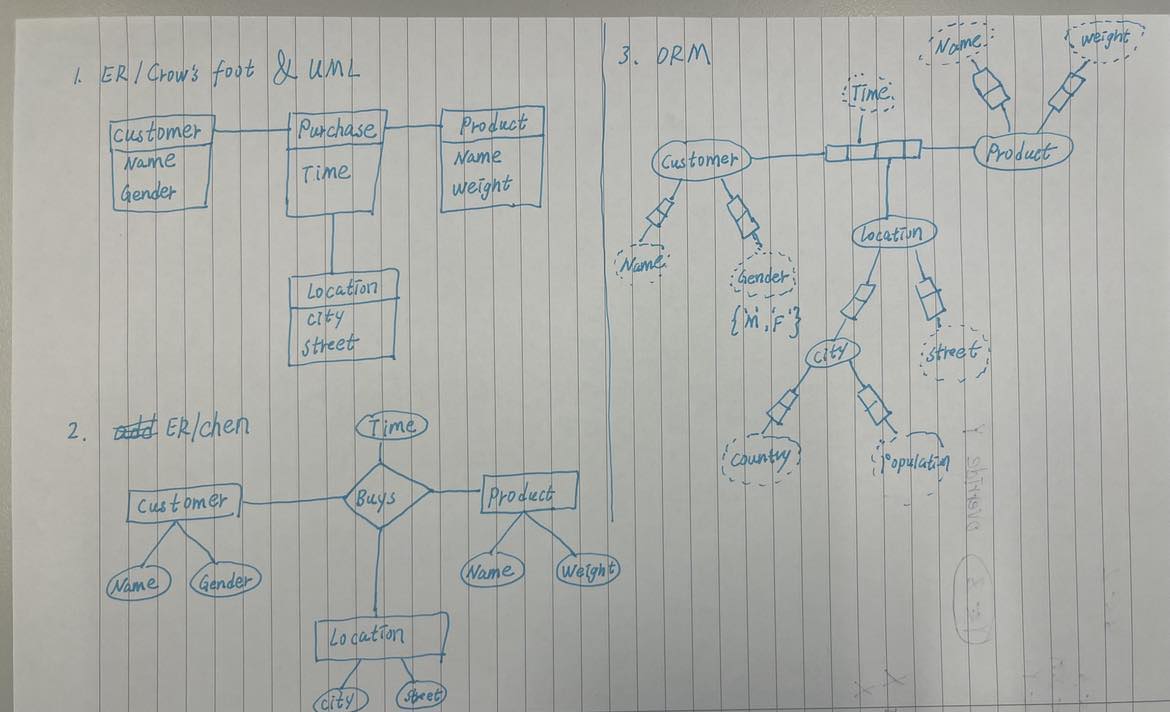 1. ER/Crow's foot & UML
Customer
Name
Gender
Purchase
Time
Product
Name
weight
Location
city
street
2. ER/chen
Time
Customer
Buys
Product
Name
Gender
Name
Weight
Location
city
street
3. ORM
Name
weight
Time
Customer
Product
Name
Gender
{'M','F'}
Location
city
street
Country
Population